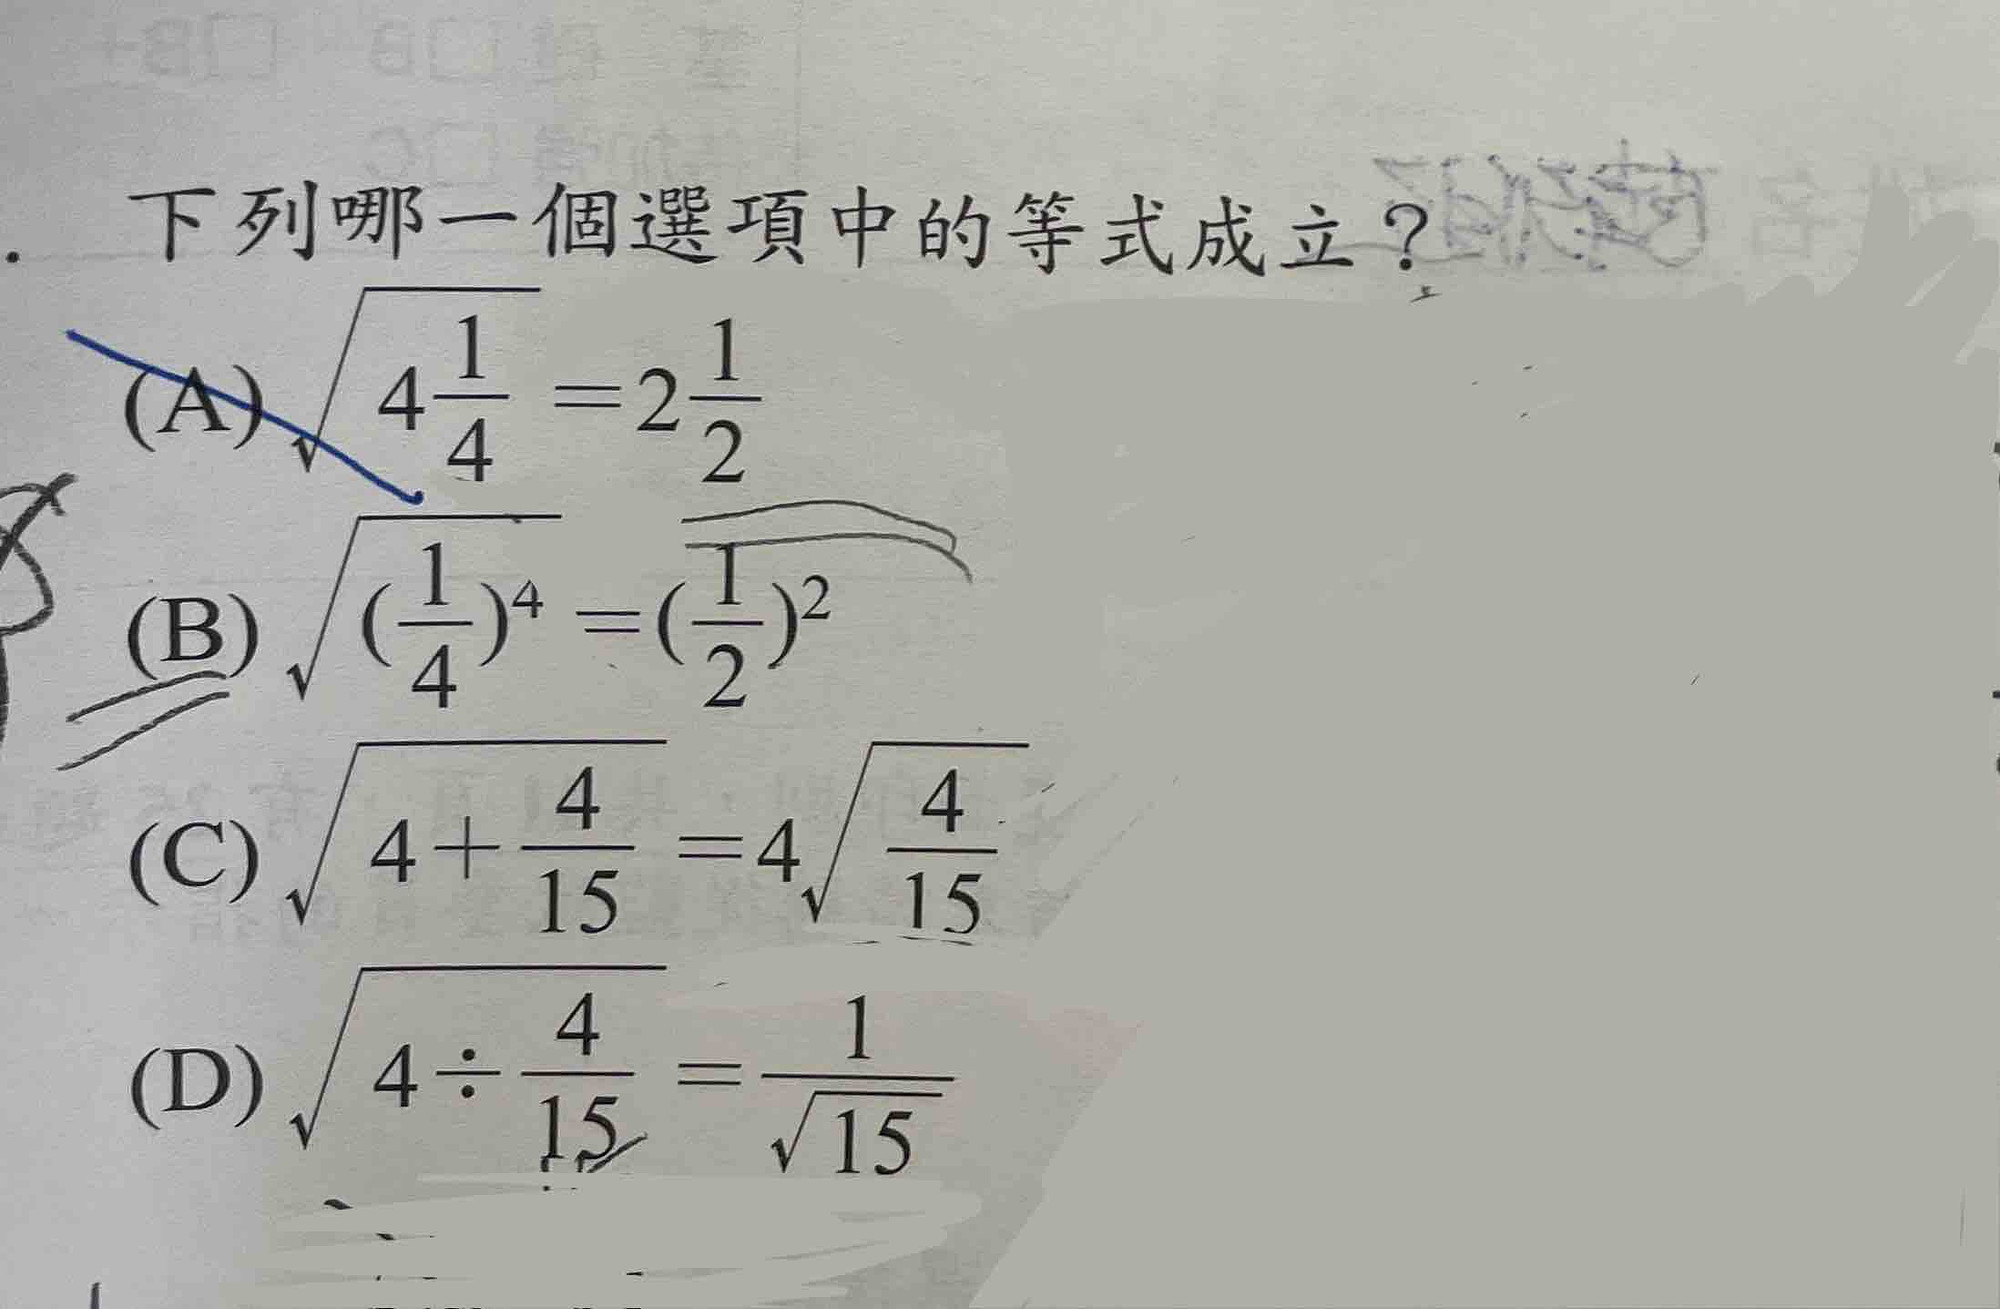 下列哪一個選項中的等式成立？
(A) √(4 1/4) = 2 1/2
(B) √((1/4)⁴) = (1/2)²
(C) √(4 + 4/15) = 4√(4/15)
(D) √(4 ÷ 4/15) = 1/√15